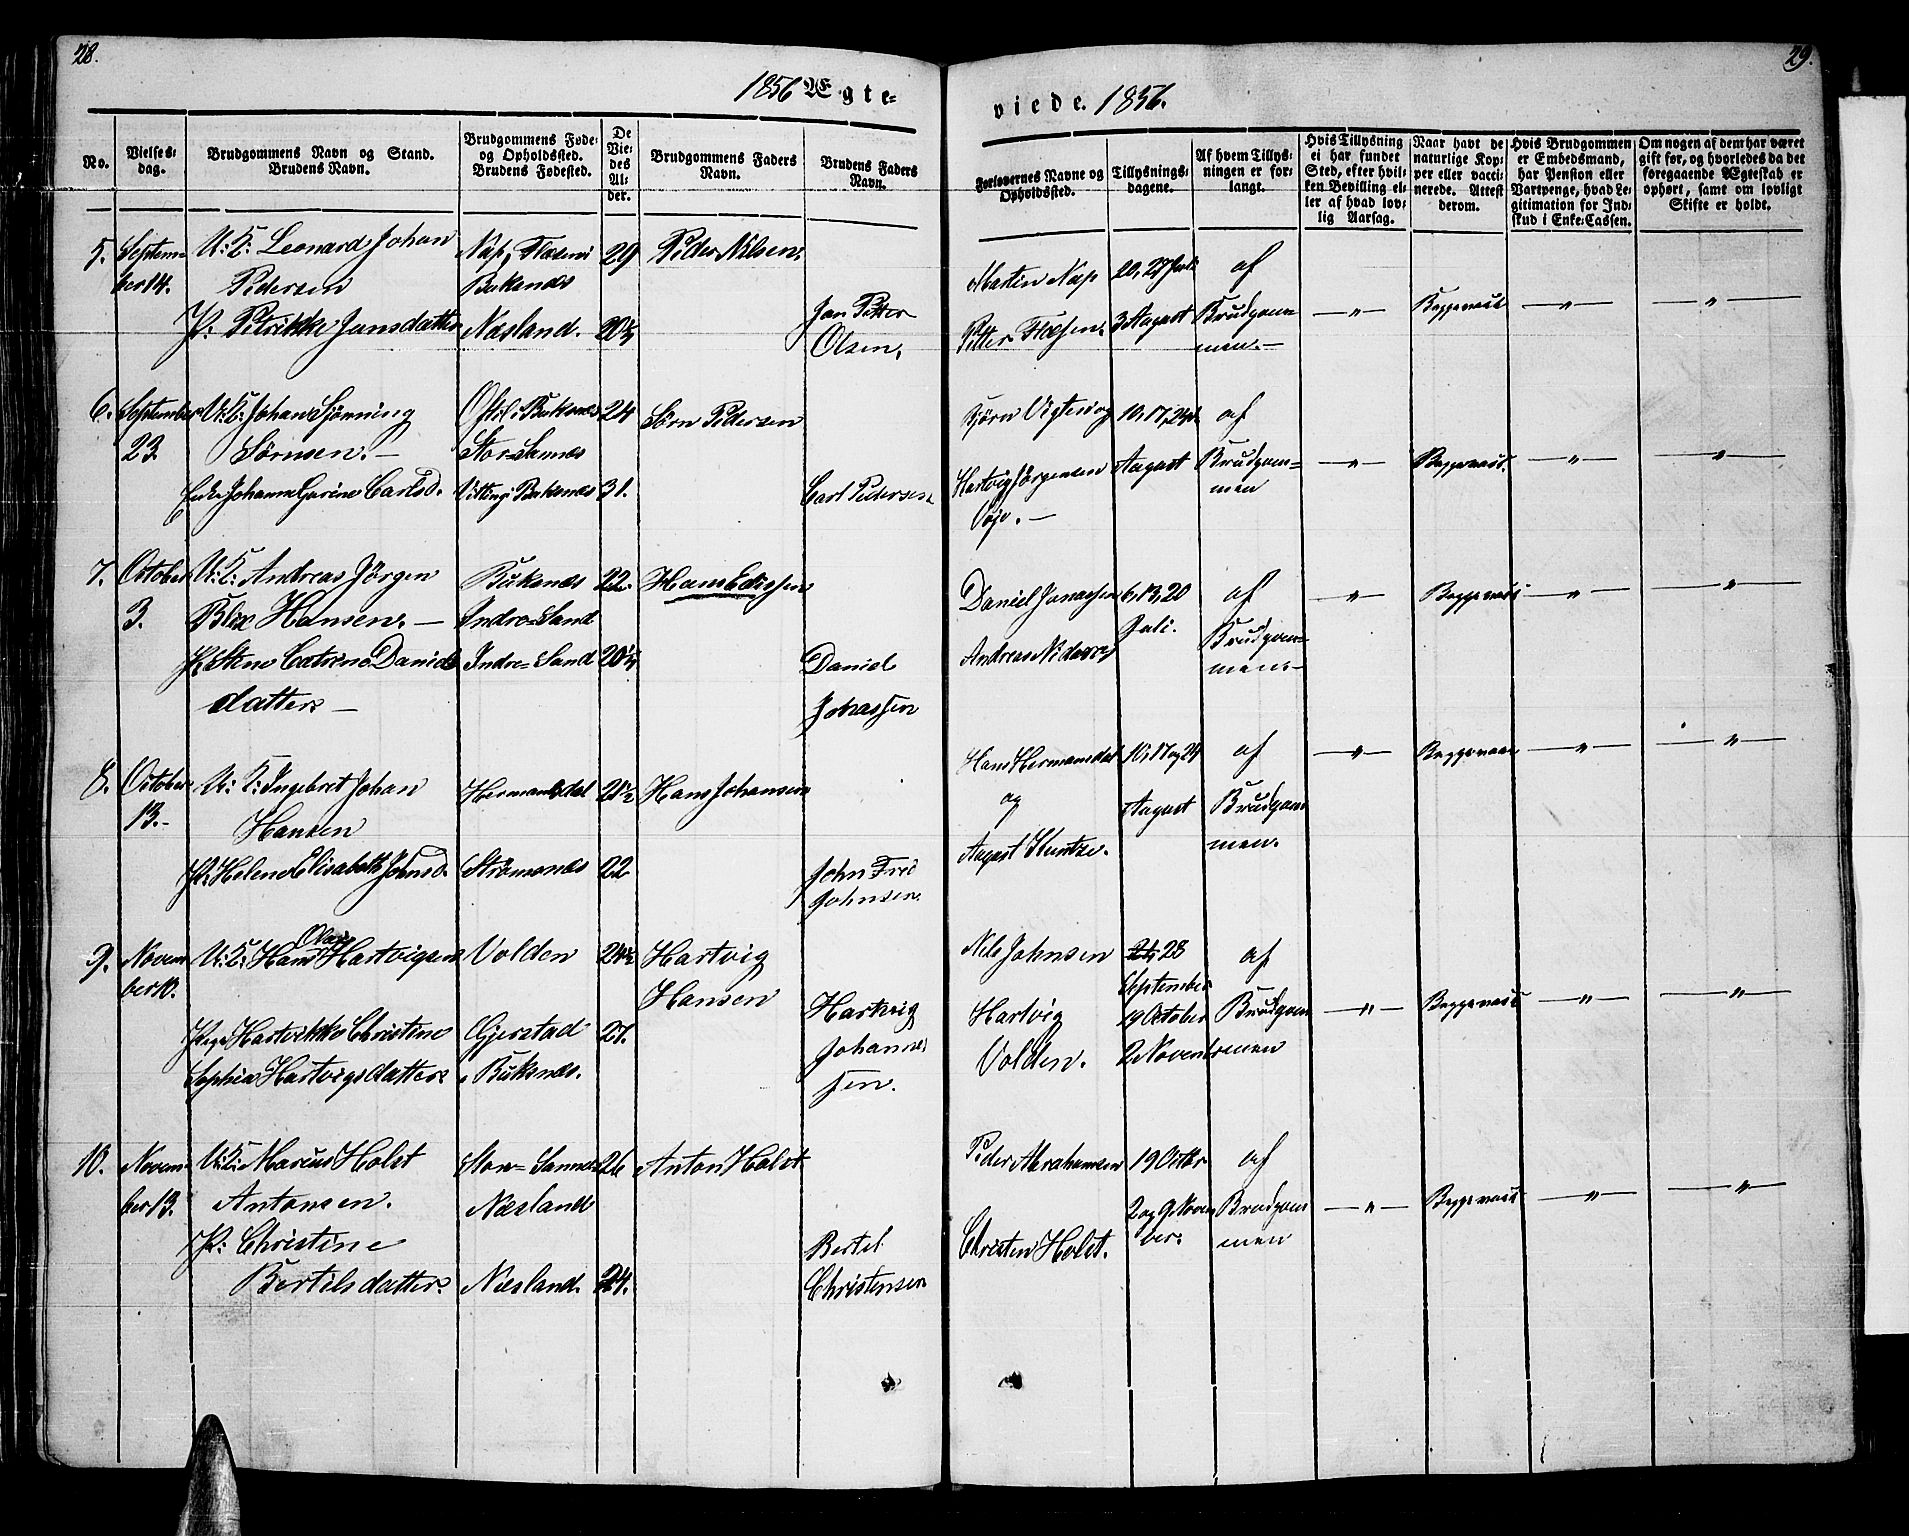 28.
29.
1856 Ægte-
viede. 1856.
No.
Vielses-
dag.
Brudgommens Navn og Stand.
Brudens Navn.
Brudgommens Føde-
og Opholdssted.
Brudens Fødested.
De
Vie-
des
Al-
der.
Brudgommens Faders
Navn.
Brudens Faders
Navn.
Forlovernes Navne og
Opholdssted.
Tillysnings-
dagene.
Af hvem Tillys-
ningen er for-
langt.
Hvis Tillysning
ei har fundet
Sted, efter hvil-
ken Bevilling el-
ler af hvad lov-
lig Aarsag.
Naar havt de
naturlige Kop-
per eller vacci-
nerede. Attest
derom.
Hvis Brudgommen
er Embedsmand,
har Pension eller
Vartpenge, hvad Le-
gitimation for Ind-
skud i Enke-Cassen.
Om nogen af dem har været
gift før, og hvorledes da det
foregaaende Ægteskab er
ophørt, samt om lovligt
Skifte er holdt.
5. Septem-
ber 14.
U: K: Leonard Johan
Pedersen
P: Petrikke Jansdatter
Nap, Flæsen i
Buksnæs
Næsland.
29
20½
Peder Nilsen.
Jan Petter
Olsen.
Martin Nap
Petter Flæsen.
20, 27 Juli
3 August
af
Brudgom-
men. —
— " —
Begge vacc
— " —
— " —
6. September
23.
U: K: Johan Sjørning
Sørnsen. —
Enke Johanna Gurine Carlsd.
Buksnæs
Stor-Sannes
Buksnæs
24
31.
Sørn Pedersen
Carl Pedersen
Bjørn Vigten og
Hartvig Jørgensen
Voje. —
10, 17, 24de
August
af
Brudgom-
men
— " —
Begge vacc.
— " —
— " —
7. October
3.
U: K: Andreas Jørgen
Blix Hansen. —
P: Stine Catrine Daniels
datter —
Buksnæs
Indre-Sand
Indre-Sand
22
20½
Hans Edissen
Daniel
Johassen
Daniel Jonassen
Andreas
6, 13, 20
Juli.
af
Brudgom-
men-
— " —
Begge vacc
— " —
— " —
8. October
13.-
U: K: Ingebret Johan
Hansen
P: Helene Elisabeth Johnsd.
Hermansdal
Strømsnæs
21½
22
Hans Johansen
John Fred
Johnsen.
Hans Hermansdal
og
August Kuntze.
10, 17 og 24
August
af
Brudgom
men.
— " —
Begge vacc
— " —
— " —
9. Novem
ber 10.
U: K: Hans Olai Hartvigsen
Pige Hartvikke Christine
Sophia Hartvigsdatter
Volden
Gjerstad
i Buksnæs.
24½
27.
Hartvig
Hansen
Hartvig
Johannes
sen.
Nils Johnsen
Hartvig
Volden.
21, 28
September
19 October
2 Novem
af
Brudgom
men
— " —
Begge vacc
— " —
— " —
10. Novem-
ber 13.
U: K: Marcus Holst
Antonsen.
P: Christine
Bertilsdatter
Stor-Sannes
Næsland
Næsland.
26
24.
Anton Holst
Bertel
Christensen
Peder Abrahamsen
Christen Holst.
19 Octbr
2 og 9 Novem
ber.
af
Brudgom
men
— " —
Begge vacc
— " —
— " —